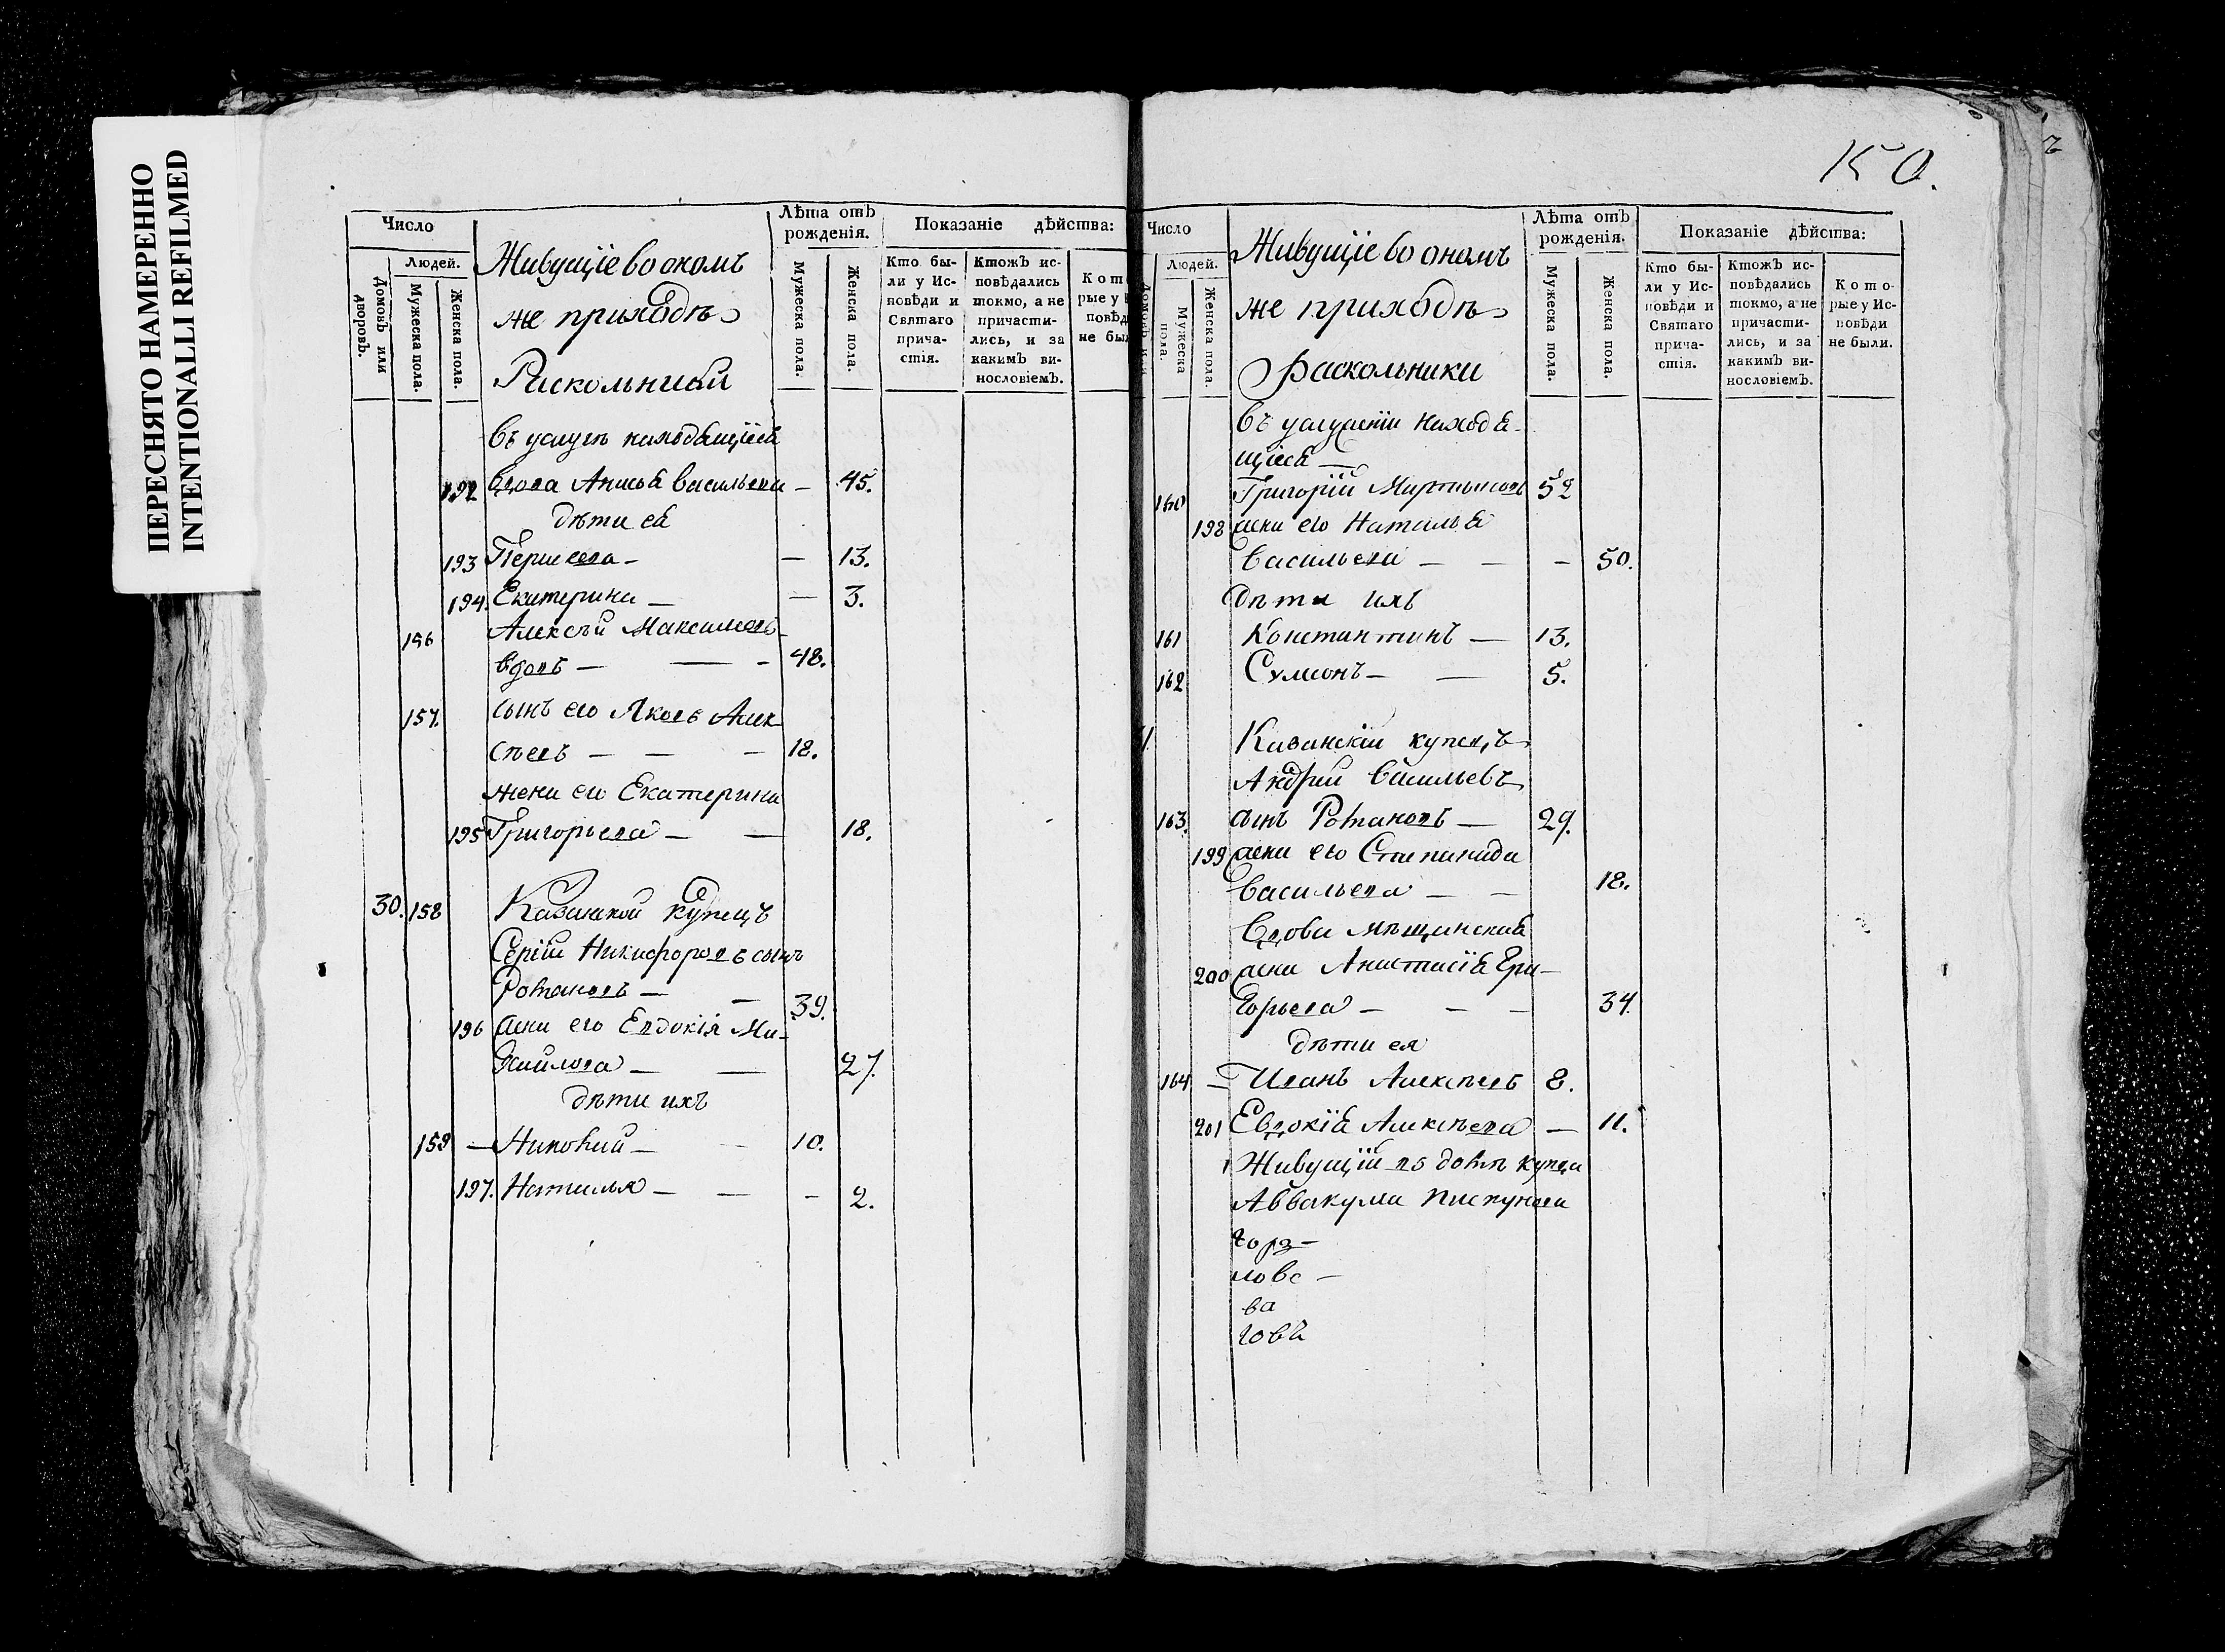 ПЕРЕСНЯТО НАМЕРЕННО
INTENTIONALLI REFILMED
Число
Людей.
Домовъ или дворовъ.
Мужеска пола.
Женска пола.
Живущіе во ономъ
же приходѣ
Раскольники
Лѣта отъ рожденія.
Мужеска пола.
Женска пола.
Показаніе дѣйства:
Кто были у Исповѣди и Святаго причастія.
Ктожъ исповѣдались токмо, а не причастились, и за какимъ винословіемъ.
въ услугѣ находящіеся
192 вдова Анисья Васильева — 45.
дѣти ея
193 — — 13.
194. Екатерина — — 3.
156 Алексѣй Максимовъ
вдовъ — — - 48.
157. сынъ его Яковъ Алек
сѣевъ — — — 18.
жена его Екатерина
195 Григорьева — — 18.
30. 158 Казанской купецъ
Сергій Никифоровъ сынъ
Романовъ — — 39.
196 жена его Евдокія Ми-
хайлова — — 27.
дѣти ихъ
159 — — 10.
197. Наталья — — - 2.
150.
Число
Людей.
Мужеска пола.
Женска пола.
Живущіе во ономъ
же приходѣ
раскольники
Лѣта отъ рожденія.
Мужеска пола.
Женска пола.
Показаніе дѣйства:
Кто были у Исповѣди и Святаго причастія.
Ктожъ исповѣдались токмо, а не причастились, и за какимъ винословіемъ.
Которые у Исповѣди не были.
въ услуженіи находя-
щіеся —
160 Григорій Мартыновъ 52
198 жена его Наталья
Васильева — — - 50.
дѣти ихъ
161 Константинъ — 13.
162 Сумеонъ — — 5.
Казанскій купецъ
Андрей Васильевъ
163. сынъ Романовъ — 29.
199 жена его Степанида
Васильева — — 18.
Вдова мѣщанская
200 жена Анастасія Гри-
горьева — — — 34.
дѣти ея
164 — Иванъ Алексѣевъ 8.
201 Евдокія Алексѣева — 11.
Живущій въ домѣ купца
Аввакума Пискунова
горз-
лове —
ва
говъ